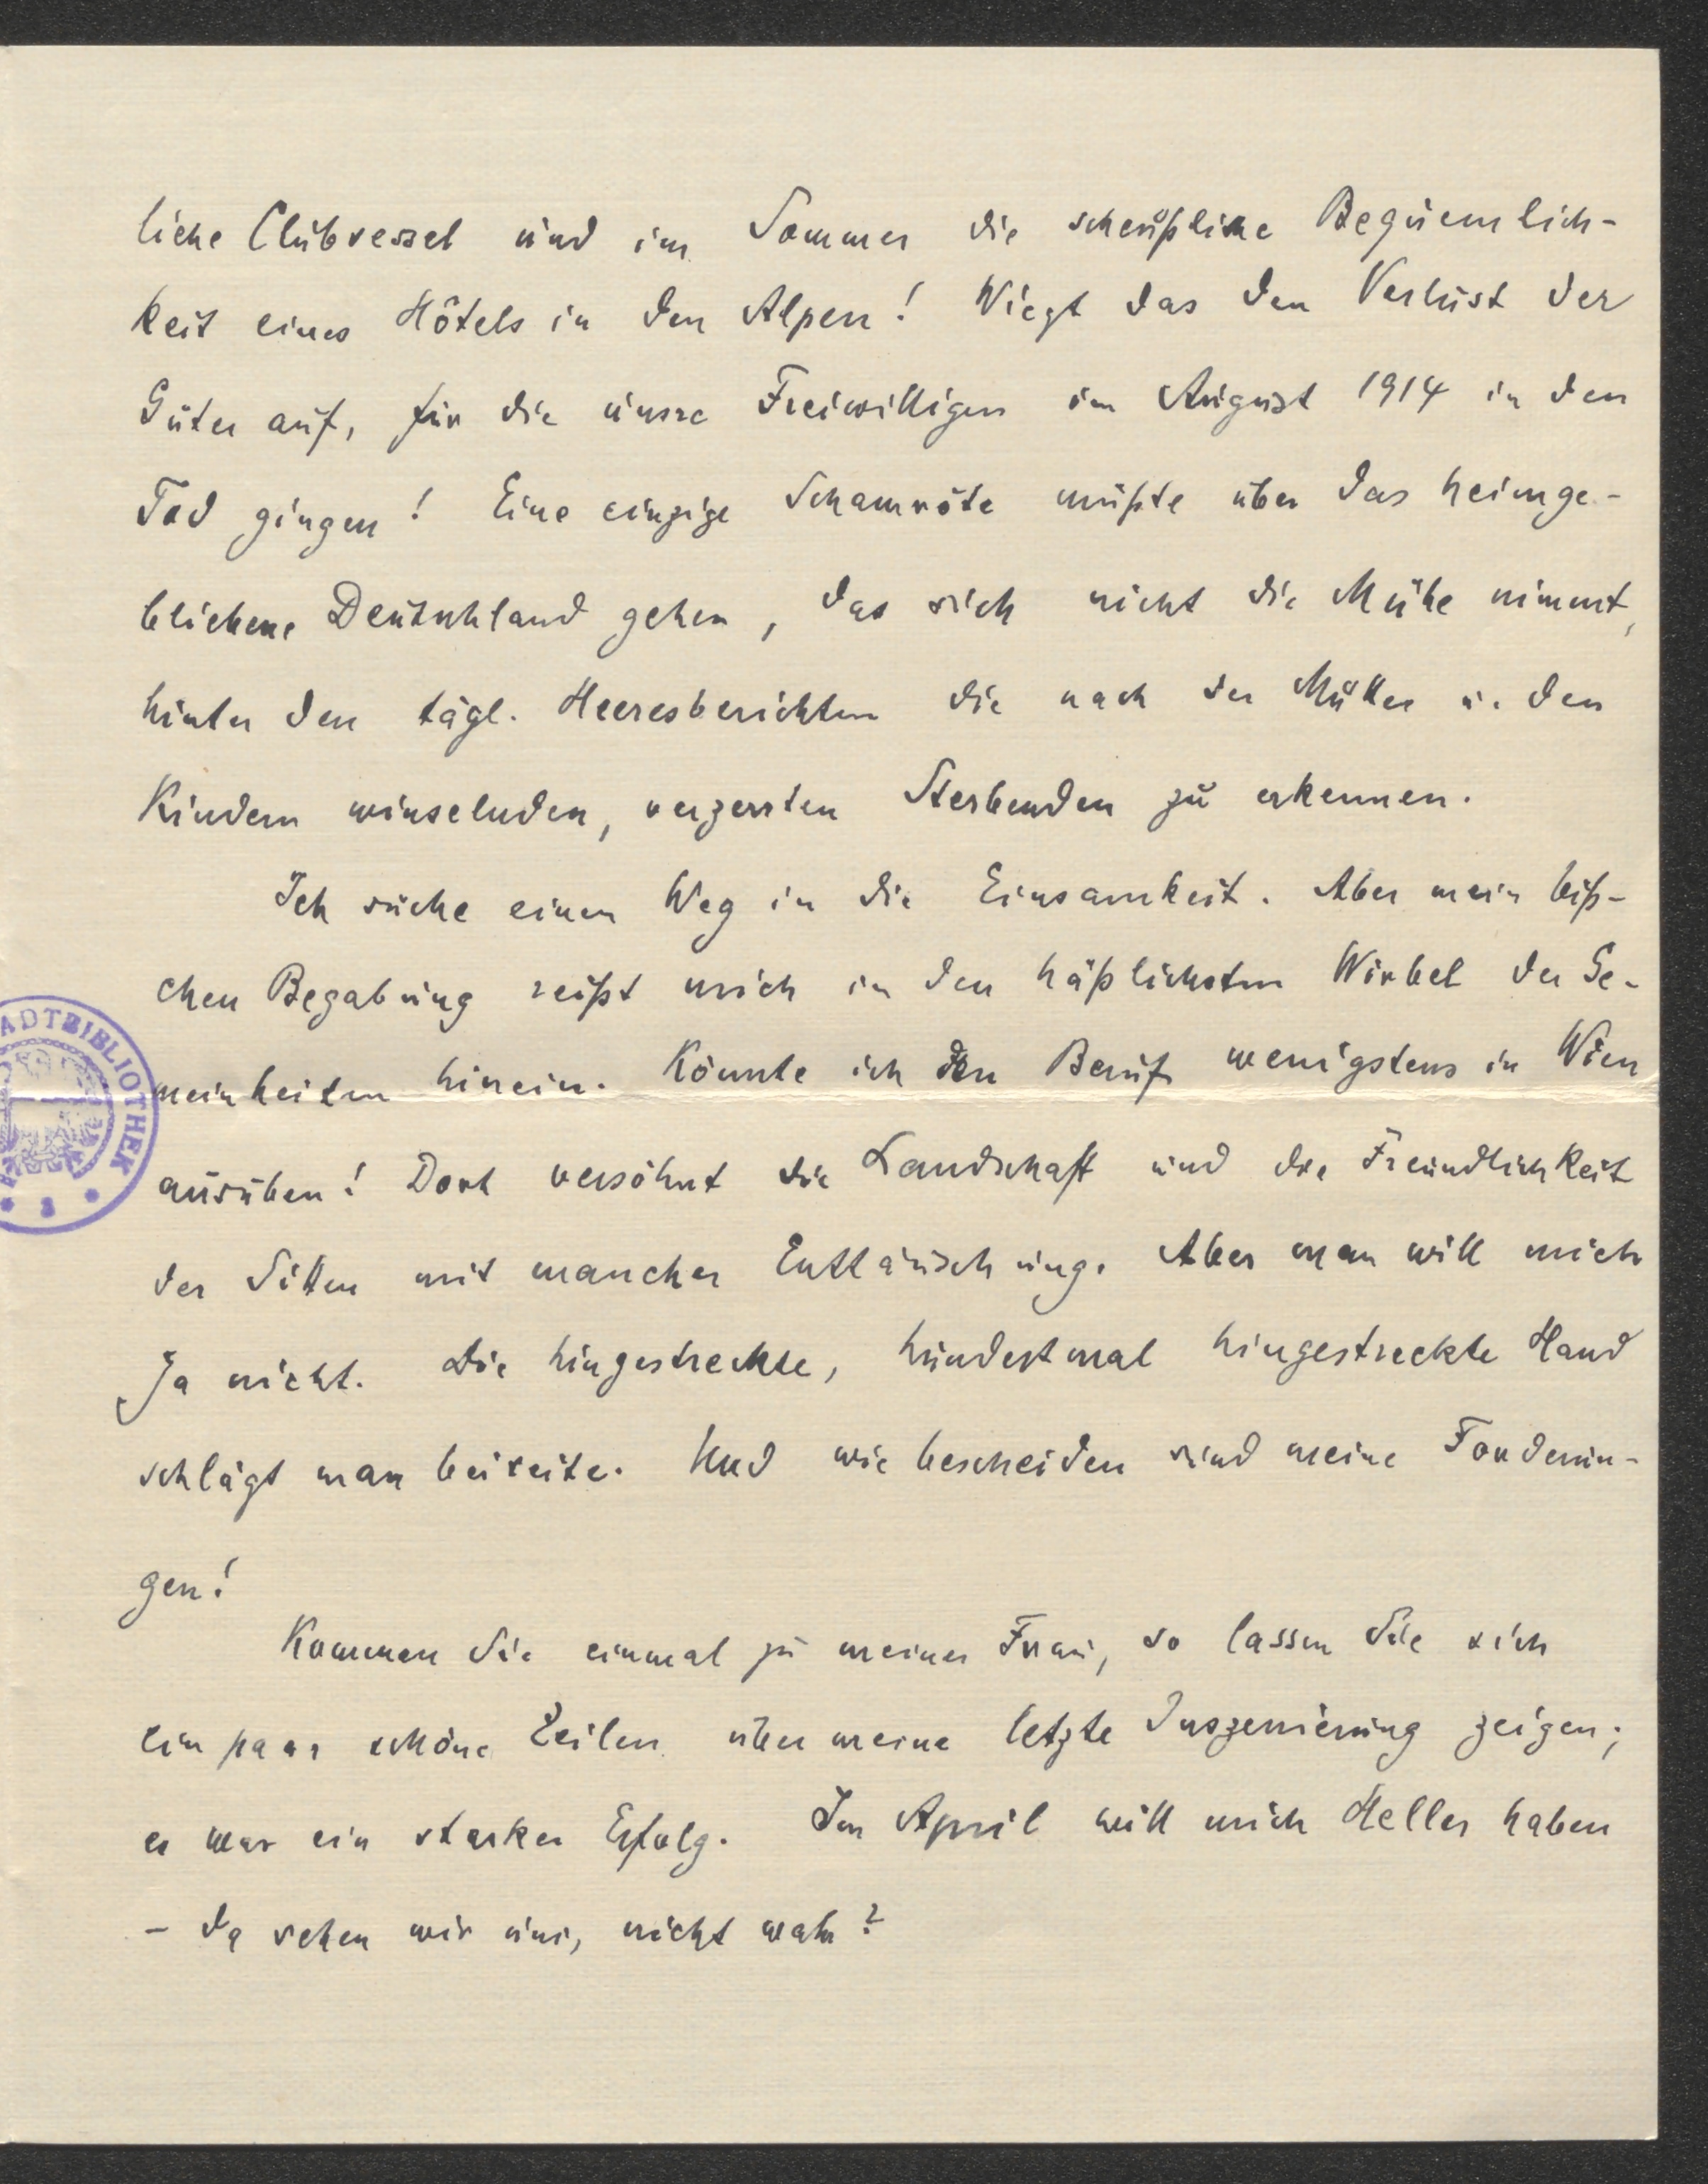 liche Clubsessel und im Sommer die scheußliche Bequemlich-
keit eines Hôtels in den Alpen! Wiegt das den Verlust der
Güter auf, für die unsre Freiwilligen im August 1914 in den
Tod gingen! Eine einzige Schamröte müßte über das heimge-
bliebene Deutschland gehen, das sich nicht die Mühe nimmt,
hinter den tägl. Heeresberichten die nach der Mutter u. den
Kindern winselnden, verzerrten Sterbenden zu erkennen.
Ich suche einen Weg in die Einsamkeit. Aber mein biß-
chen Begabung reißt mich in den häßlichsten Wirbel der Ge-
meinheiten hinein. Könnte ich den Beruf wenigstens in Wien
ausüben! Dort versöhnt die Landschaft und die Freundlichkeit
der Sitten mit mancher Enttäuschung. Aber man will mich
ja nicht. Die hingestreckte, hundertmal hingestreckte Hand
schlägt man beiseite. Und wie bescheiden sind meine Forderun-
gen!
Kommen Sie einmal zu meiner Frau, so lassen Sie sich
ein paar schöne Zeilen über meine letzte Inszenierung zeigen;
es war ein starker Erfolg. Im April will mich Heller haben
– da sehen wir uns, nicht wahr?
ADTBIBLIOTHEK